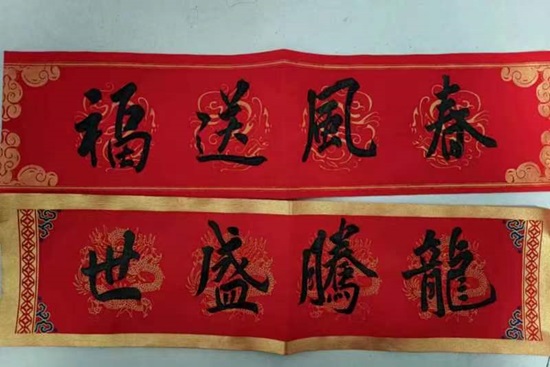 春風送福
龍騰盛世